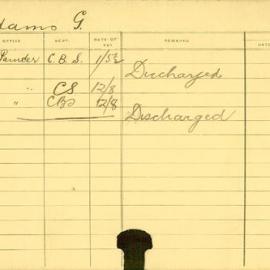 dams G.
OFFICE DEPT. RATE OF PAY REMARKS DAT
Painter C.B.S. 1/5½ Discharged
" CS 12/8
CBS 12/8 Discharged